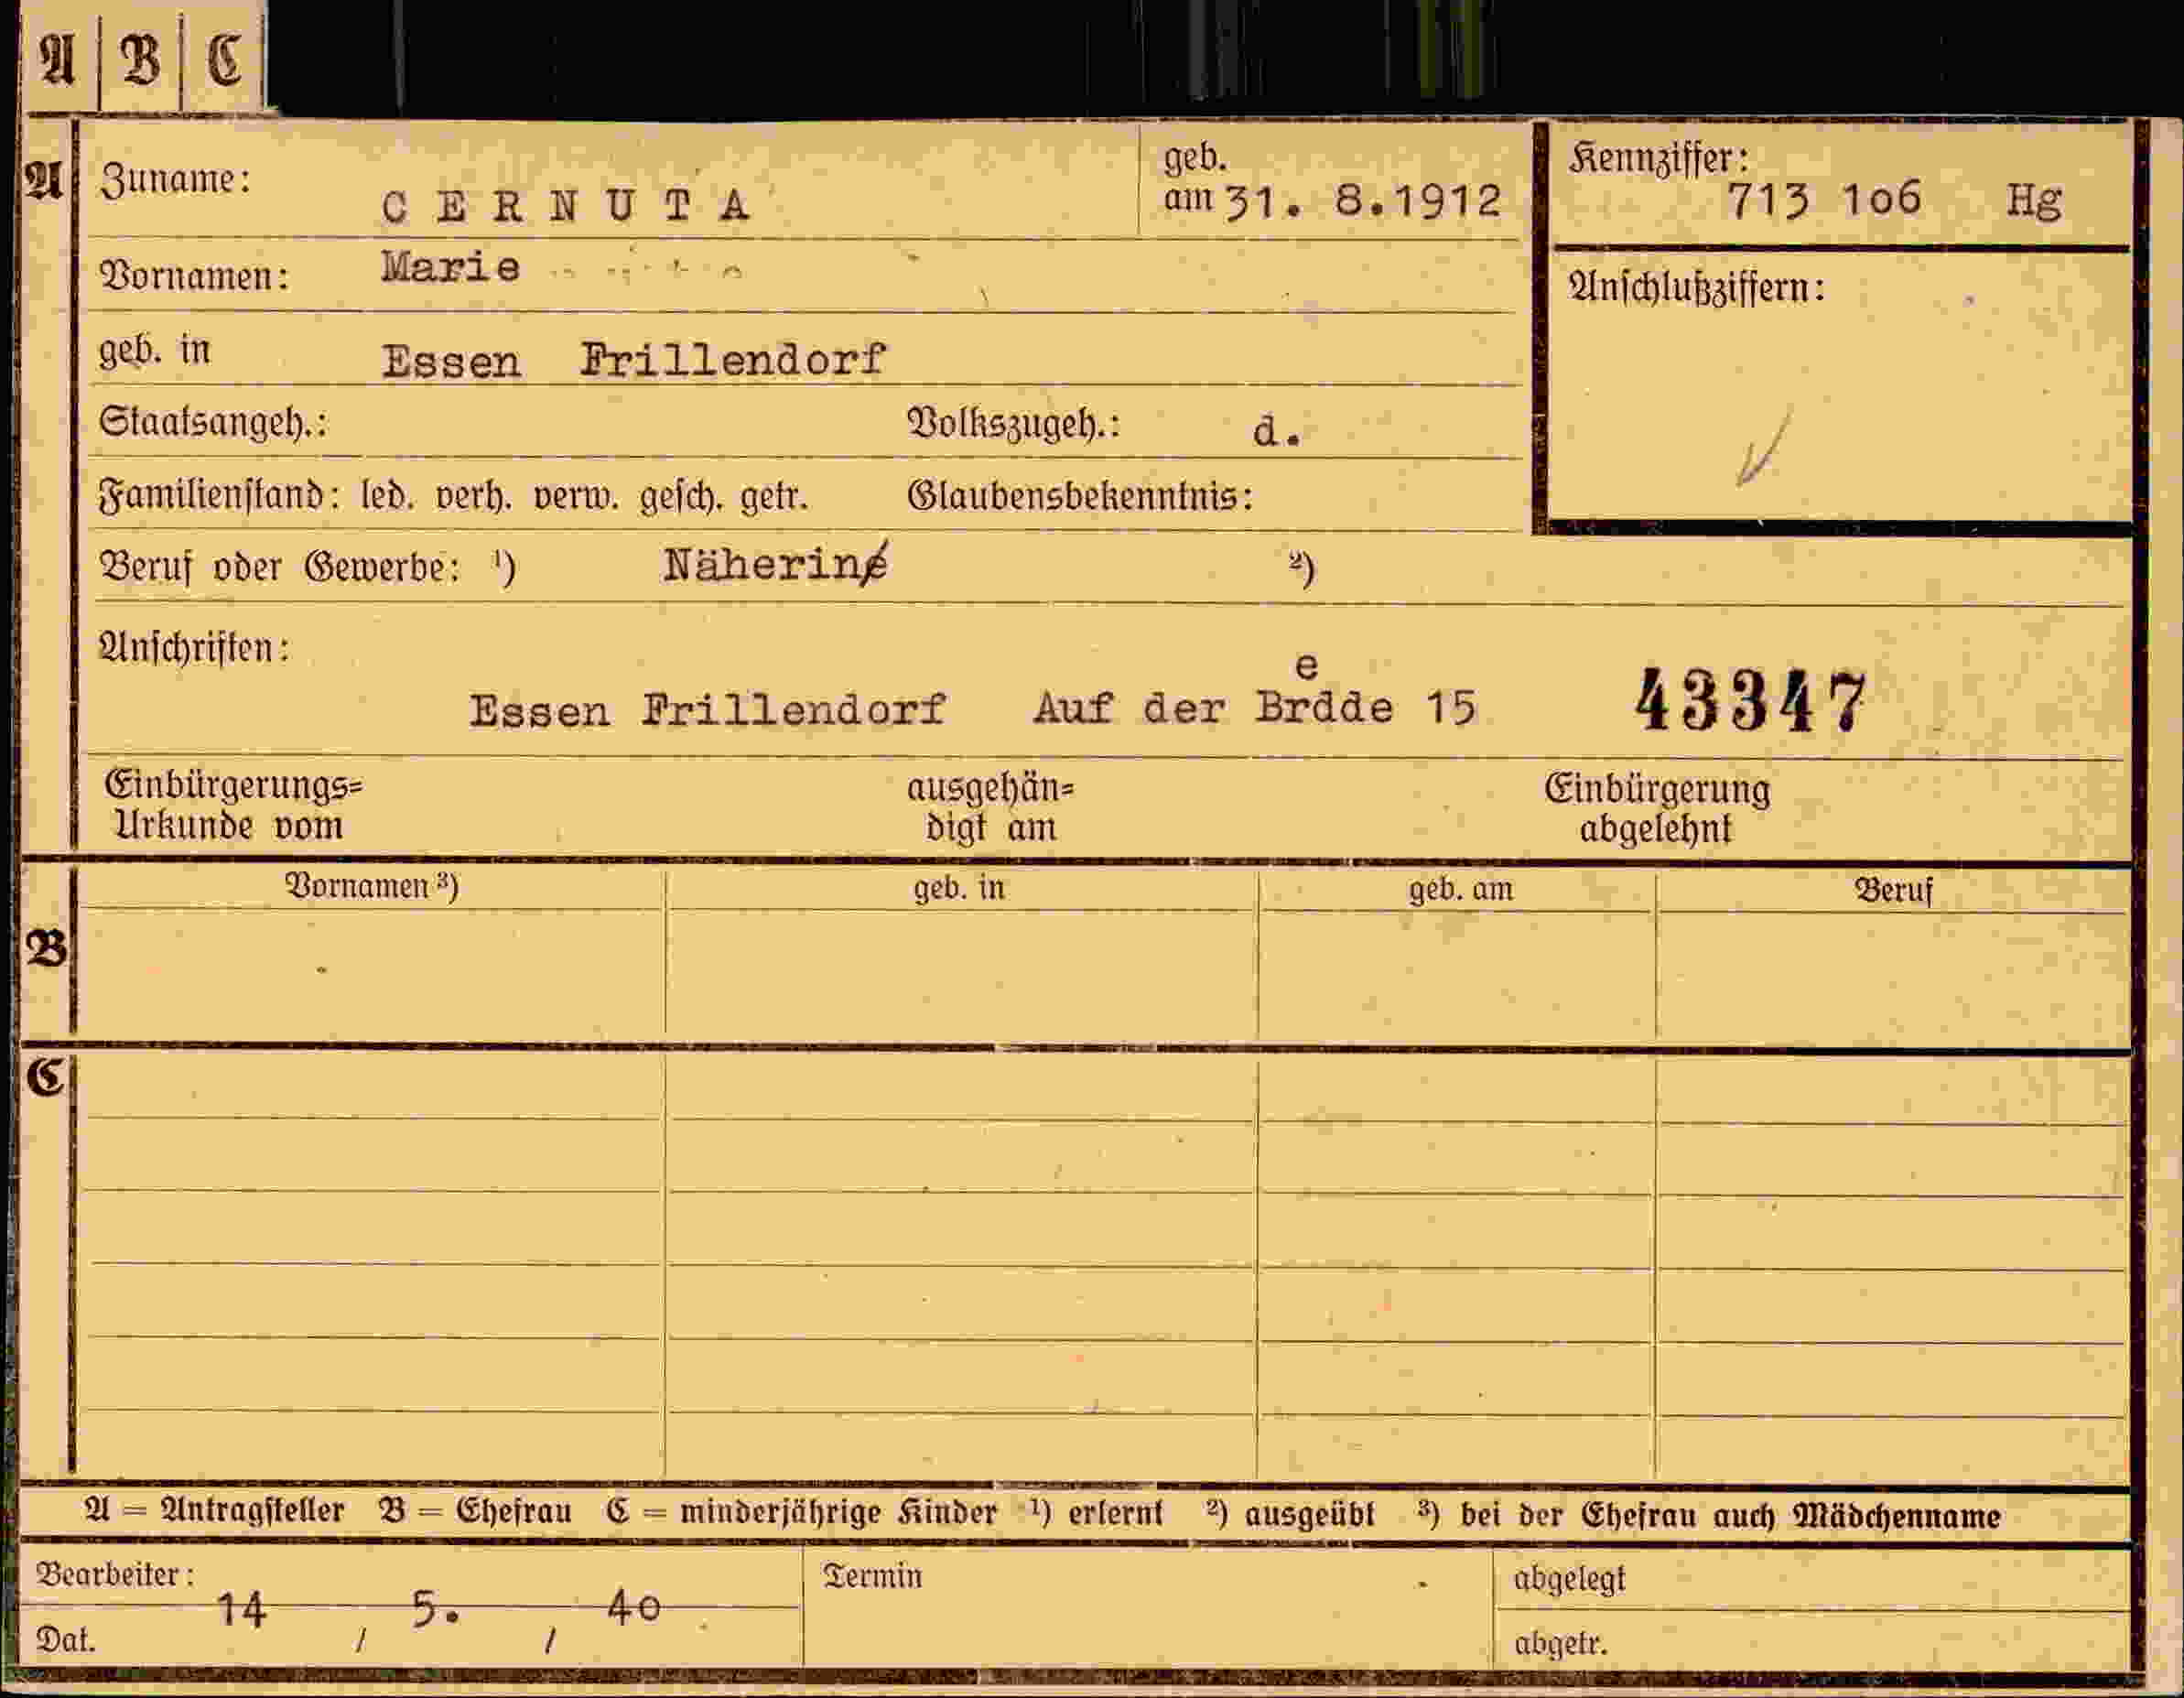 A B C
A Zuname: CERNUTA geb. am 31. 8.1912 Kennziffer: 713 1o6 Hg
Vornamen: Marie
Anschlußziffern:
geb. in Essen Frillendorf
Staatsangeh.: Volkszugeh.: d.
Familienstand: led. verh. verw. gesch. getr. Glaubensbekenntnis:
Beruf oder Gewerbe: ¹) Näherin ²)
Anschriften:
e
Essen Frillendorf Auf der Brdde 15 43347
Einbürgerungs= ausgehän= Einbürgerung
Urkunde vom digt am abgelehnt
Vornamen ³) geb. in geb. am Beruf
B
C
A = Antragsteller B = Ehefrau C = minderjährige Kinder ¹) erlernt ²) ausgeübt ³) bei der Ehefrau auch Mädchenname
Bearbeiter: Termin abgelegt
14 5. 40
Dat. / / abgetr.